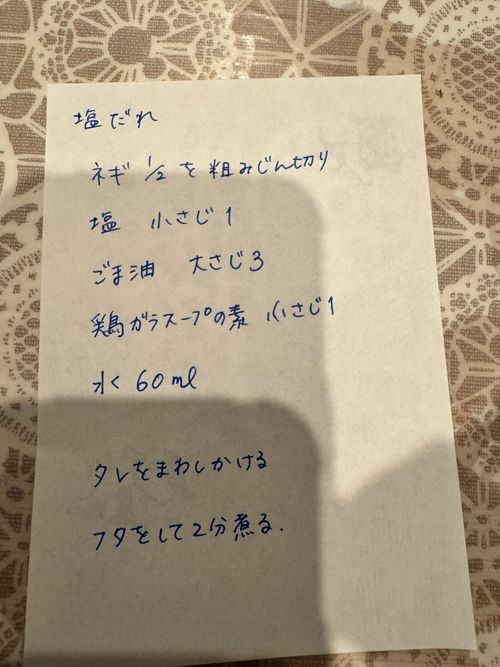 塩だれ
ネギ 1/2 を 粗みじん切り
塩 小さじ1
ごま油 大さじ3
鶏ガラスープの素 小さじ1
水 60ml
タレをまわしかける
フタをして2分煮る.